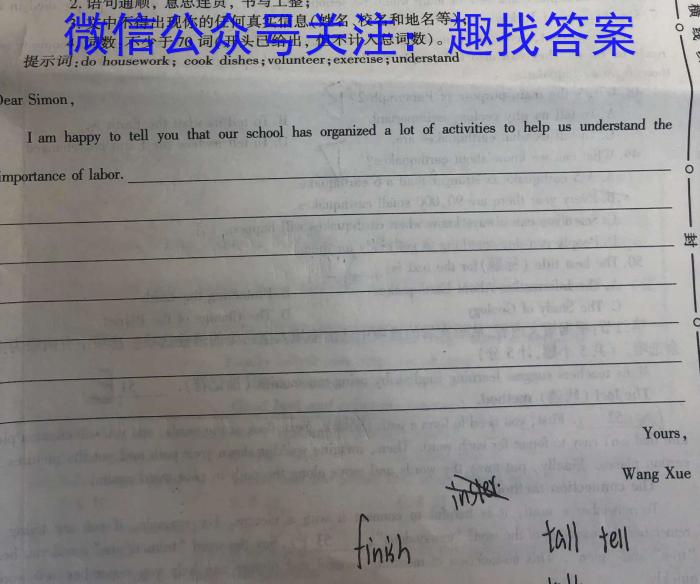 2. 语句通顺，意思连贯，书写工整；
微信公众号关注：趣找答案
提示词:do housework; cook dishes;volunteer;exercise;understand
Dear Simon,
I am happy to tell you that our school has organized a lot of activities to help us understand the
importance of labor.
封
Yours,
Wang Xue
finish
tall tell